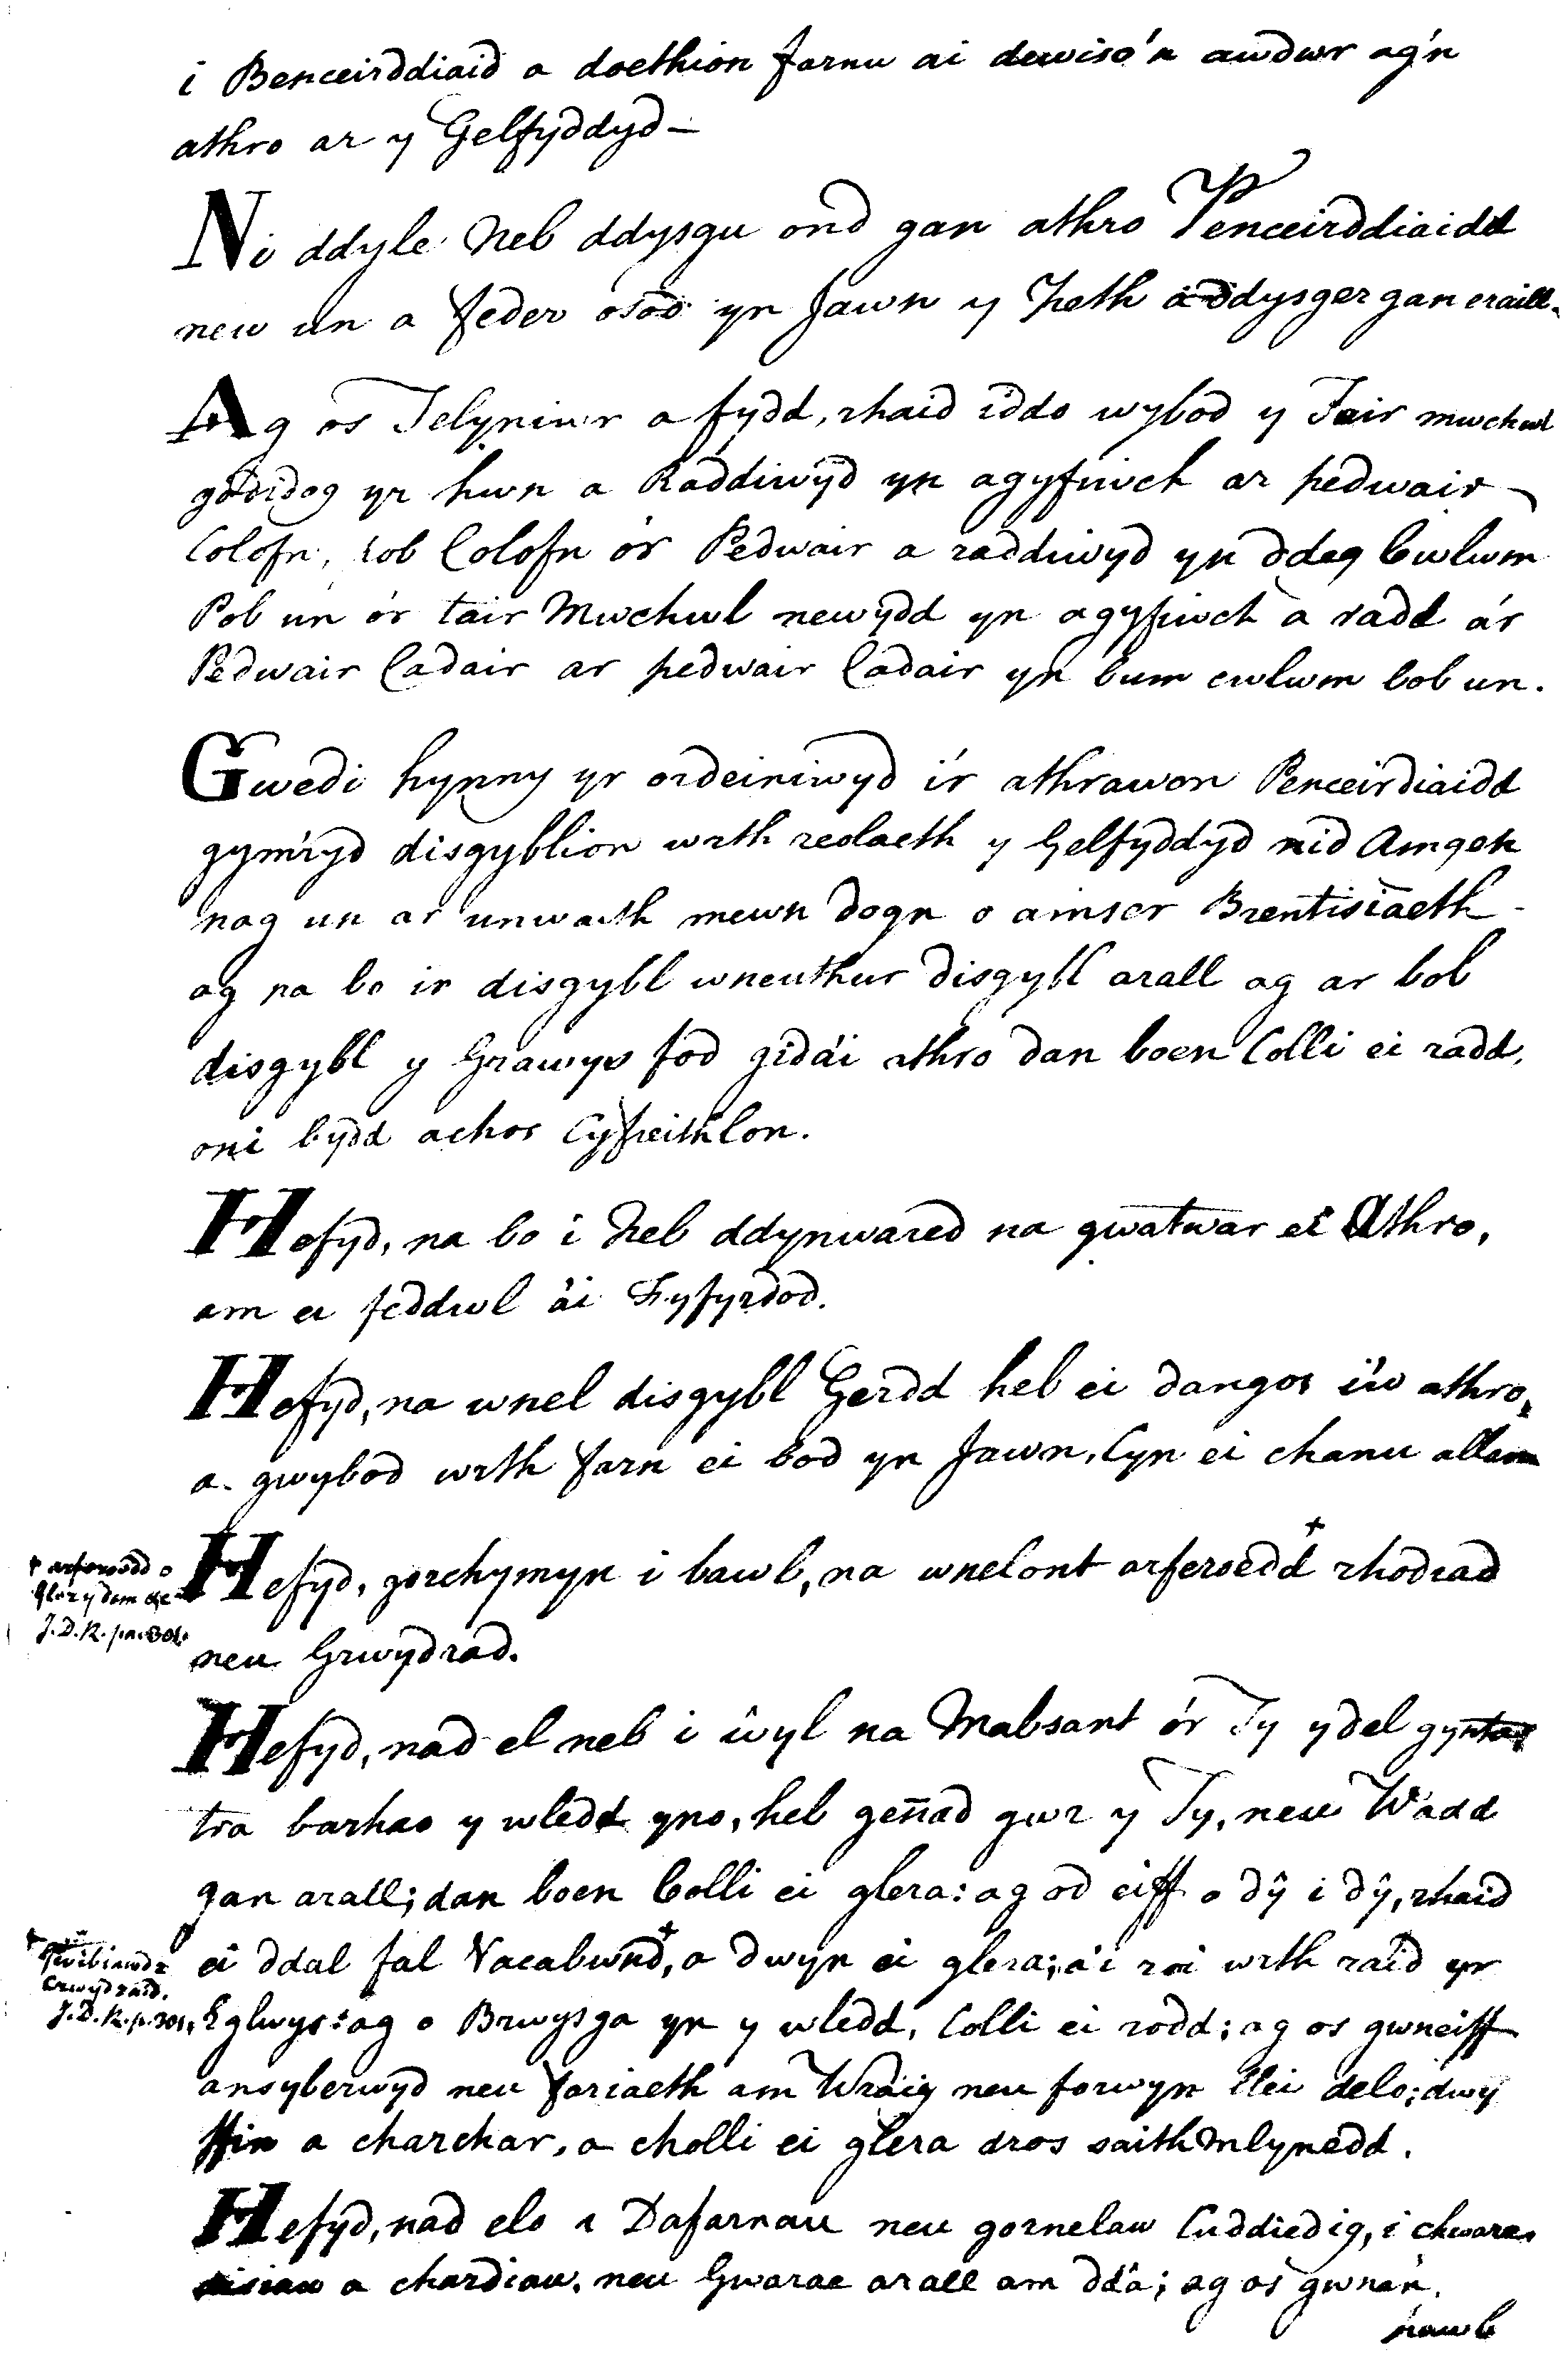 i Benceirddiaid a doethion farnu ai dewiso'n awdwr ag'n
athro ar y Gelfyddyd —
Ni ddyle Neb ddysgu ond gan athro Penceirddiaidd
neu un a feder osod yn Jawn y Peth a ddysger gan eraill.
Ag os Telyniwr a fydd, rhaid iddo wybod y Tair mwchwl
godidog yr hwn a Raddiwyd yn agyfiwch ar pedwair
Colofn, bob Colofn o'r Pedwair a raddiwyd yn ddeg Cwlwm
Pob un o'r tair Mwchwl newydd yn agyfiwch a radd a'r
Pedwair Cadair ar pedwair Cadair yn bum cwlwm bob un.
Gwedi hynny yr ordeiniwyd i'r athrawon Penceirdiaidd
gymryd disgyblion wrth reolaeth y Gelfyddyd nid Amgen
nag un ar unwaith mewn dogn o amser Brentisiaeth
ag na bo ir disgybl wneuthur disgybl arall ag ar bob
disgybl y Grawys fod gida'i athro dan boen Colli ei radd,
oni bydd achos Cyfreithlon.
Hefyd, na bo i Neb ddynwared na gwatwar ei Athro,
am ei feddwl a'i Fyfyrdod.
Hefyd, na wnel disgybl Gerdd heb ei dangos i'w athro,
a gwybod wrth farn ei bod yn Jawn, Cyn ei chanu allan
Hefyd, gorchymyn i bawb, na wnelont arferoedd + rhodiad
neu Grwydrad.
+ arferoedd o
Glerydom &c
J.D.R. pa. 301.
Hefyd, nad el neb i wyl na Mabsant o'r Ty ydel gyntaf
tra barhao y wledd yno, heb genad gwr y Ty, neu Wadd
gan arall; dan boen Colli ei glera: ag od eiff o dŷ i dŷ, rhaid
ei ddal fal Vacabwnd, + a dwyn ei glera; a'i roi wrth raid yr
Eglwys: ag o Brwysga yn y wledd, Colli ei rodd; ag os gwneiff
ansyberwyd neu fariaeth am Wraig neu forwyn lle i delo; dwy
ffin a charchar, a cholli ei glera dros saith Mlynedd.
+ Gwibiawdr
Crwydraid.
J.D.R. p. 301.
Hefyd, nad elo i Dafarnau neu gornelaw Cuddiedig, i chwarae
disiau a chardiau, neu Gwarae arall am dda; ag os gwnân,
nawb